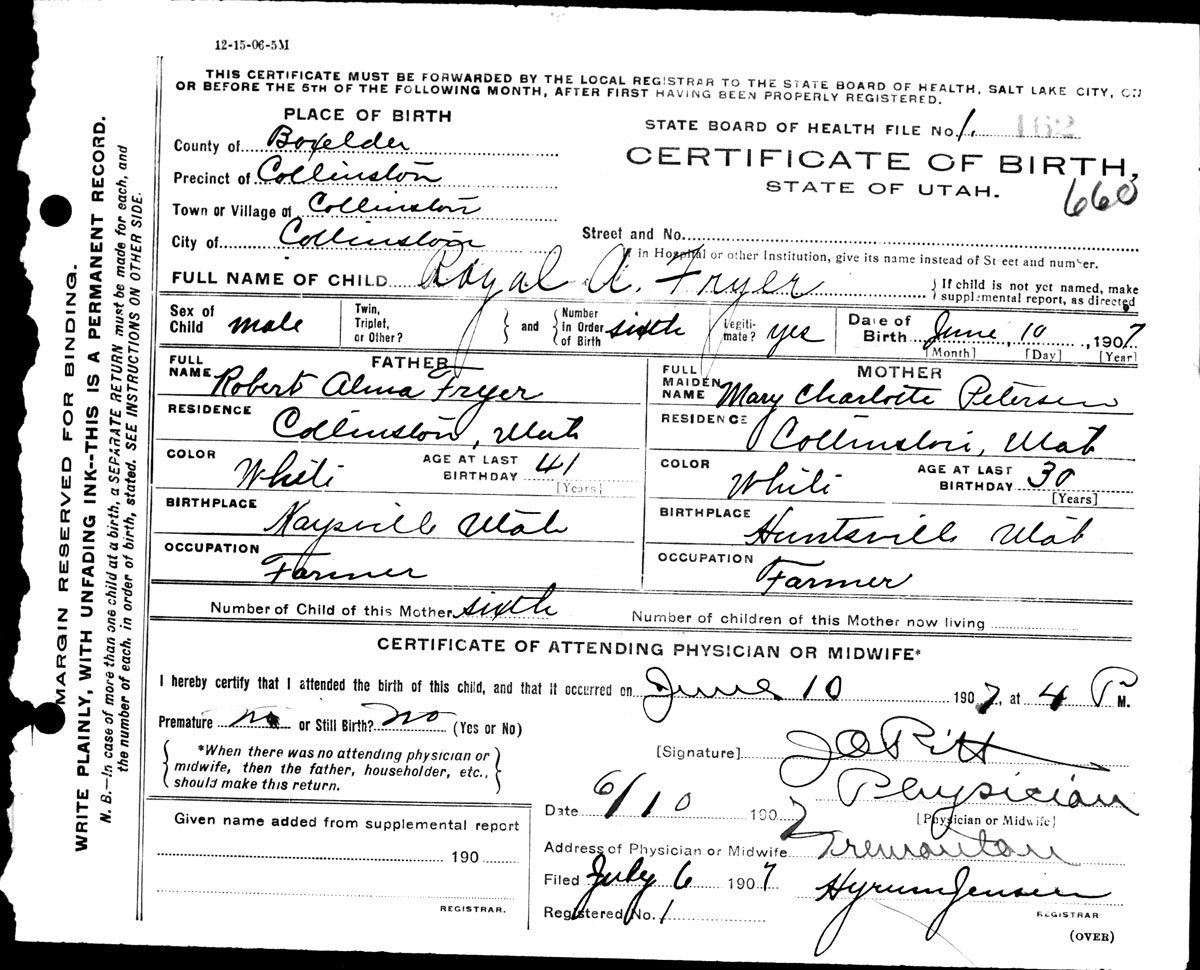 12-15-06-5M
THIS CERTIFICATE MUST BE FORWARDED BY THE LOCAL REGISTRAR TO THE STATE BOARD OF HEALTH, SALT LAKE CITY, ON
OR BEFORE THE 5TH OF THE FOLLOWING MONTH, AFTER FIRST HAVING BEEN PROPERLY REGISTERED.
MARGIN RESERVED FOR BINDING.
WRITE PLAINLY, WITH UNFADING INK--THIS IS A PERMANENT RECORD.
N. B.—In case of more than one child at a birth, a SEPARATE RETURN must be made for each, and
the number of each, in order of birth, stated. SEE INSTRUCTIONS ON OTHER SIDE.
PLACE OF BIRTH
County of Boxelder
Precinct of Collinston
Town or Village of Collinston
City of Collinston
STATE BOARD OF HEALTH FILE No. 1. 162
CERTIFICATE OF BIRTH,
STATE OF UTAH.
660
Street and No.
If in Hospital or other Institution, give its name instead of Street and number.
FULL NAME OF CHILD Royal A. Fryer
If child is not yet named, make
supplemental report, as directed
Sex of Child male
Twin, Triplet, or Other?
and
Number in Order of Birth sixth
Legiti-mate? yes
Date of Birth June, 10, 1907
[Month] [Day] [Year]
FATHER
FULL NAME Robert Alma Fryer
RESIDENCE
Collinston, Utah
COLOR White
AGE AT LAST BIRTHDAY 41
[Years]
BIRTHPLACE
Kaysville Utah
OCCUPATION
Farmer
MOTHER
FULL MAIDEN NAME Mary Charlotte Petersen
RESIDENCE
Collinston, Utah
COLOR White
AGE AT LAST BIRTHDAY 30
[Years]
BIRTHPLACE
Huntsville Utah
OCCUPATION
Farmer
Number of Child of this Mother sixth
Number of children of this Mother now living
CERTIFICATE OF ATTENDING PHYSICIAN OR MIDWIFE*
I hereby certify that I attended the birth of this child, and that it occurred on June 10 1907, at 4 P M.
Premature no or Still Birth? no (Yes or No)
*When there was no attending physician or
midwife, then the father, householder, etc.,
should make this return.
[Signature] J O Pitt
Physician
[Physician or Midwife]
Date 6/10 1907
Address of Physician or Midwife Tremonton
Filed July 6 1907
Hyrum Jensen
REGISTRAR
Registered No. 1
(OVER)
Given name added from supplemental report
190
REGISTRAR.